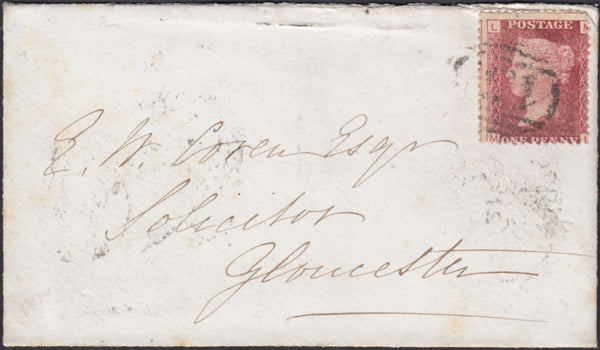 L M
POSTAGE
M ONE PENNY L
E. W. Coren Esqr
Solicitor
Gloucester